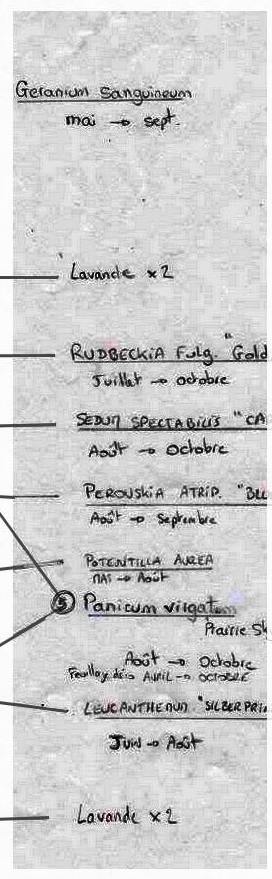 Geranium Sanguineum
mai → sept.
Lavande x2
RUDBECKIA Fulg. "Gold
Juillet → octobre
SEDUM SPECTABILIS "CA
Août → Octobre
PEROVSKIA ATRIP. "BLU
Août → Septembre
POTENTILLA AUREA
MAI → Août
⑤ Panicum virgatum
Prairie Sk
Août → Octobre
Feuillage déco AVRIL → OCTOBRE
LEUCANTHEMUM "SILBERPRIN
JUIN → Août
Lavande x2